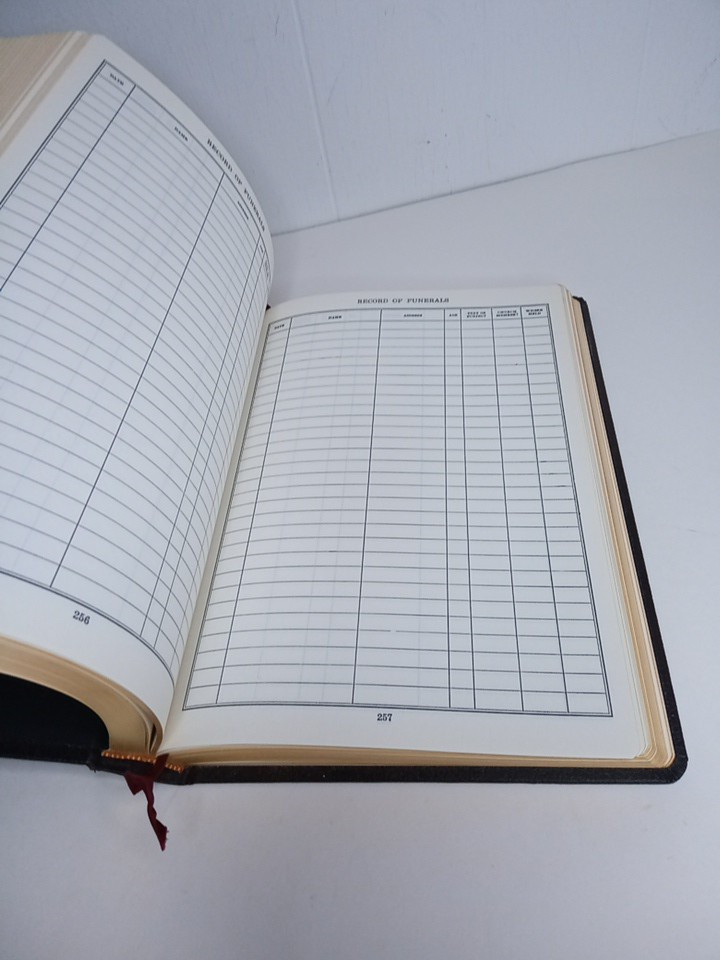 RECORD OF FUNERALS
DATE
NAME
256
RECORD OF FUNERALS
DATE NAME ADDRESS AGE CHURCH MEMBER? WHERE HELD
257